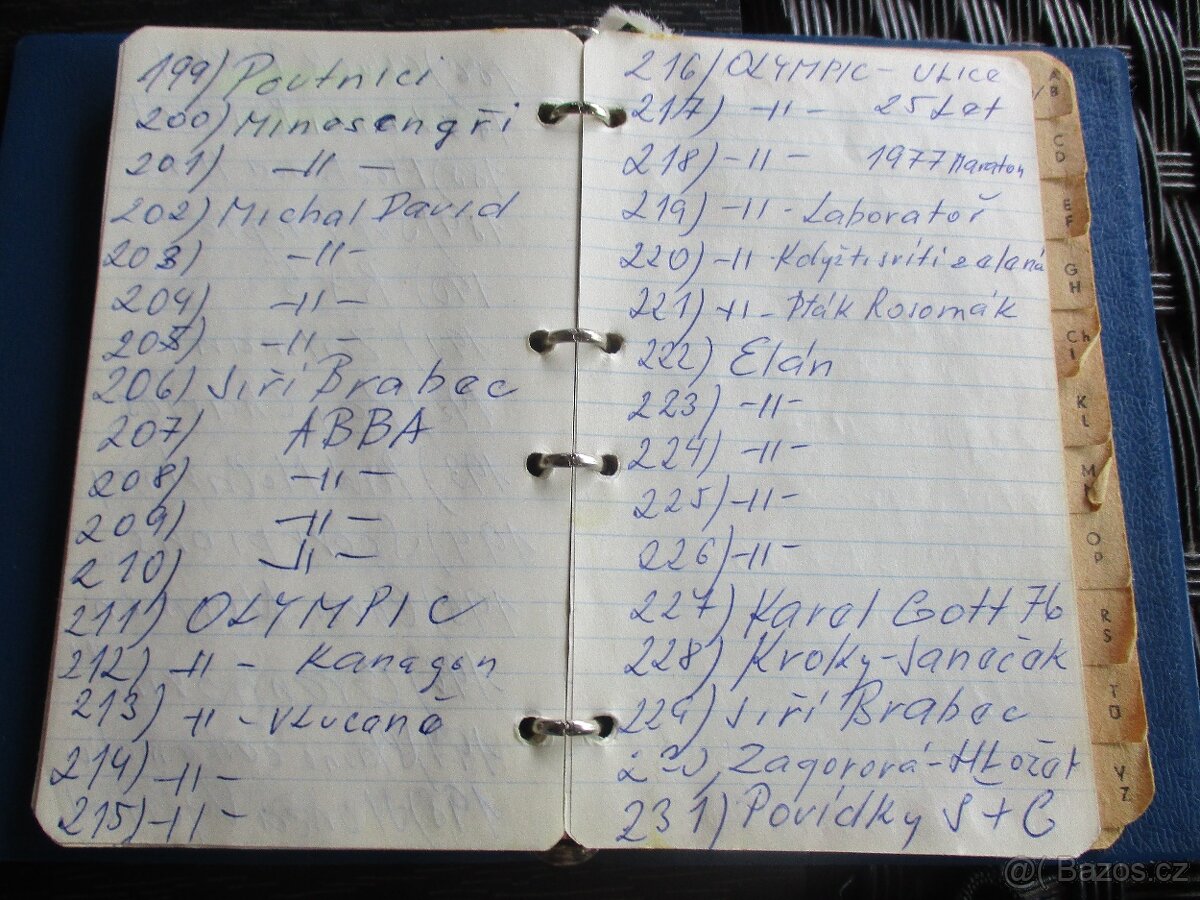 199) Poutníci
200) Minesengři
201) -11-
202) Michal David
203) -11-
204) -11-
205) -11-
206) Jiří Brabec
207) ABBA
208) -11-
209) -11-
210) -11-
211) OLYMPIC
212) -11- Kanagon
213) -11- Vlucaně
214) -11-
215) -11-
216) OLYMPIC - Ulice
217) -11- 25 Let
218) -11- 1977 Maraton
219) -11- Laboratoř
220) -11- Když ti svítí zelená
221) -11- Pták Rosomák
222) Elán
223) -11-
224) -11-
225) -11-
226) -11-
227) Karel Gott 76
228) Kroky-Janeček
229) Jiří Brabec
Zagorová-Hložek
231) Povídky Š+G
A
B
C
D
E
F
G
H
Ch
I
K
L
M
O
P
R
S
T
U
V
Z
@( Bazos.cz